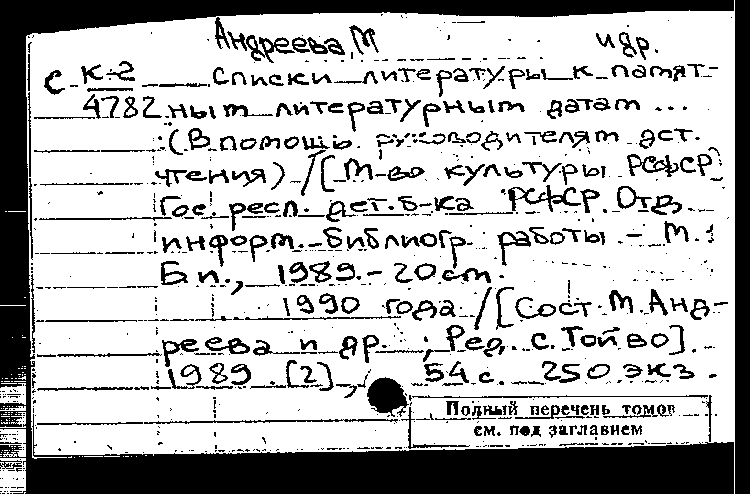 Андреева, М и др.
С К-2 Списки литературы к памят-
4782 ным литературным датам ...
: (В помощь руководителям дет.
чтения) / [М-во культуры РСФСР]
Гос. респ. дет. б-ка РСФСР. Отд.
информ.-библиогр. работы. - М.:
Б.и., 1989. - 20 см.
... 1990 года / [Сост. М. Анд-
реева и др. ; Ред. С. Тойво].
1989. [2], 54 с. 250 экз.
Полный перечень томов
см. под заглавием